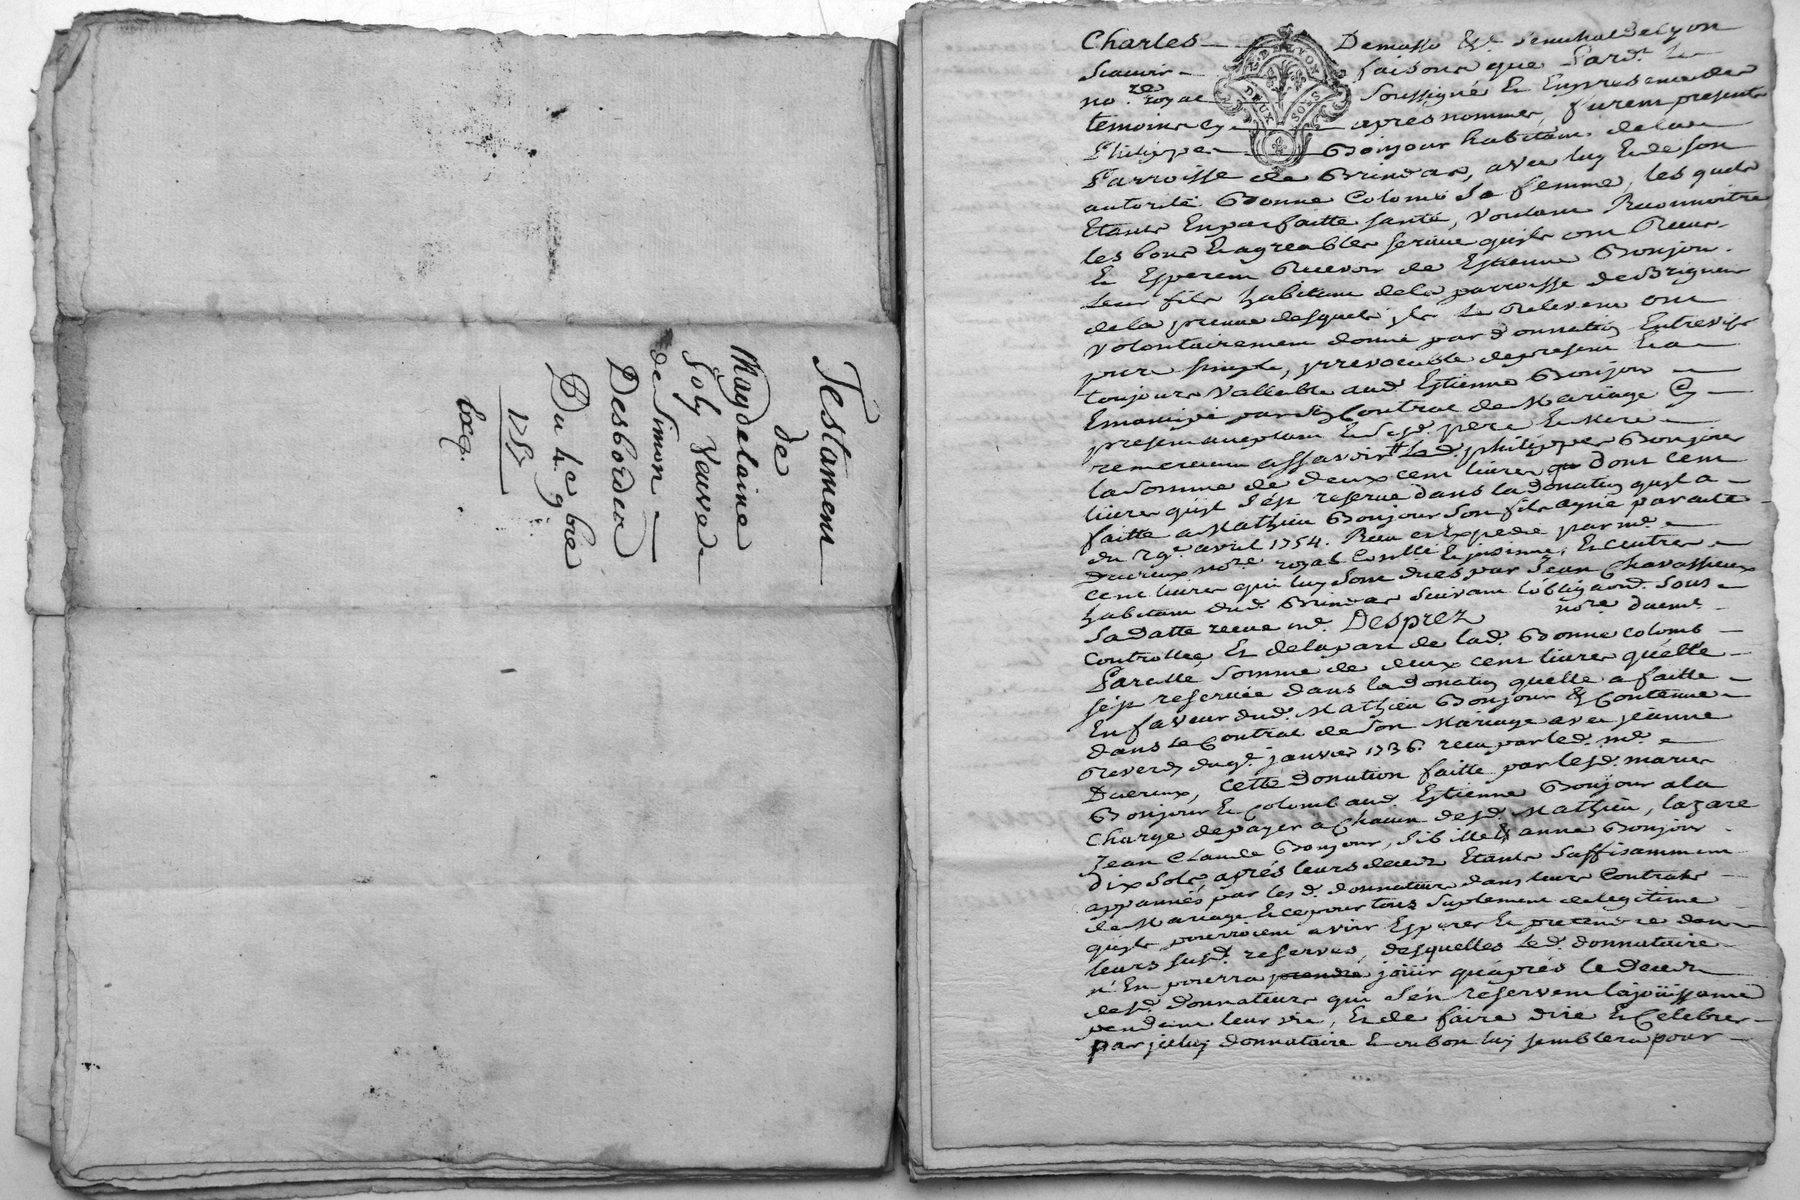 Testament
de
Magdelaine
Joly Veuve
de Simon
Desbordes
Du 4e 9bre
1757
Charles Demasso &c. seneschal de Lyon
Scavoir faisons que Pard.t le
no.re royal soussigné Et En presence des
temoins cy apres nommes, furent presents
Philippe Bonjour habitant de la
Parroisse de Brindas, avec luy Et de son
autorité Bonne Colomb sa femme, les quels
Etants En parfaitte santé, voulant Reconnoitre
les bons Et agreables services quils ont Receus
Et Esperent Recevoir de Estienne Bonjour
leur fils habitant de la parroisse de Brignais
de la preuve desquels yls Le Relevent ont
volontairement donné par donnation Entrevifs
pure simple, yrrevocable depresent Et a
toujours Vallable aud. Estienne Bonjour
Emancipé par son Contrat de Mariage Cy
present acceptant Et sesd. pere Et Mere
remerciant assavoir Led. philippes Bonjour
la somme de deux cent livres dont cent
livres quil s'est reservé dans la donation quil a
faitte a Mathieu Bonjour son fils ayné par acte
du 29e. avril 1754. Receu et Expedié par me.
Ducreux no.re royal Et les autres
cent livres qui luy sont dues par Jean Chavassieux
habitant dud. Brindas suivant l'obligaon. sous
sa datte receue me. Desprez no.re duemt.
Controllee, Et delapart de lad. Bonne Colomb
Pareille somme de deux cent livres qu'elle
s'est reservée dans la donation quelle a faitte
En faveur dud. Mathieu Bonjour Et Contenue
dans Le Contrat de son Mariage avec jeanne
Reverdy du 9e. janvier 1736. receu par led. me.
Ducreux, Cette donation faitte par lesd. maries
Bonjour Et Colomb aud. Estienne Bonjour a la
Charge de payer a Chacun desd. Mathieu, Lazare
Jean Claude Bonjour, Sibille & anne Bonjour
dix sols après leurs deces Etants suffisamment
appannés par lesd. donnateurs dans leurs Contrats
de Mariage Et ce pour tous suplement de legitime
quils pourroient avoir Esperer Et pretendre dans
leurs susd. reserves, desquelles Led. donnataire
n'En pourra prendre joüir qu'après le deces
desd. donnateurs qui s'en reservent la joüissance
pendant leur vie, Et de faire dire Et Celebrer
par jceluy donnataire Et ou bon luy semblera pour